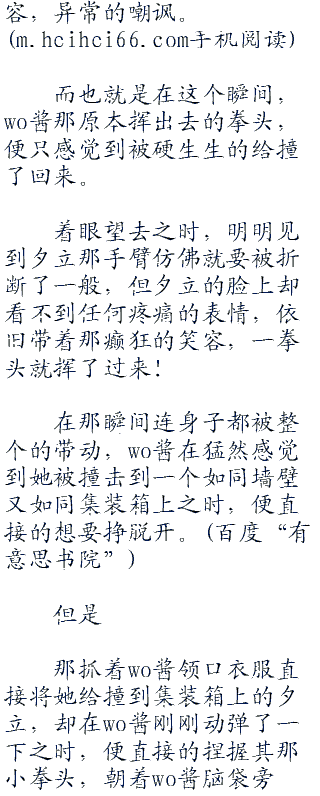 容，异常的嘲讽。
(m.hcihci66.com手机阅读)
而也就是在这个瞬间，
wo酱那原本挥出去的拳头，
便只感觉到被硬生生的给撞
了回来。
着眼望去之时，明明见
到夕立那手臂仿佛就要被折
断了一般，但夕立的脸上却
看不到任何疼痛的表情，依
旧带着那癫狂的笑容，一拳
头就挥了过来！
在那瞬间连身子都被整
个的带动，wo酱在猛然感觉
到她被撞击到一个如同墙壁
又如同集装箱上之时，便直
接的想要挣脱开。(百度“有
意思书院”)
但是
那抓着wo酱领口衣服直
接将她给撞到集装箱上的夕
立，却在wo酱刚刚动弹了一
下之时，便直接的捏握其那
小拳头，朝着wo酱脑袋旁